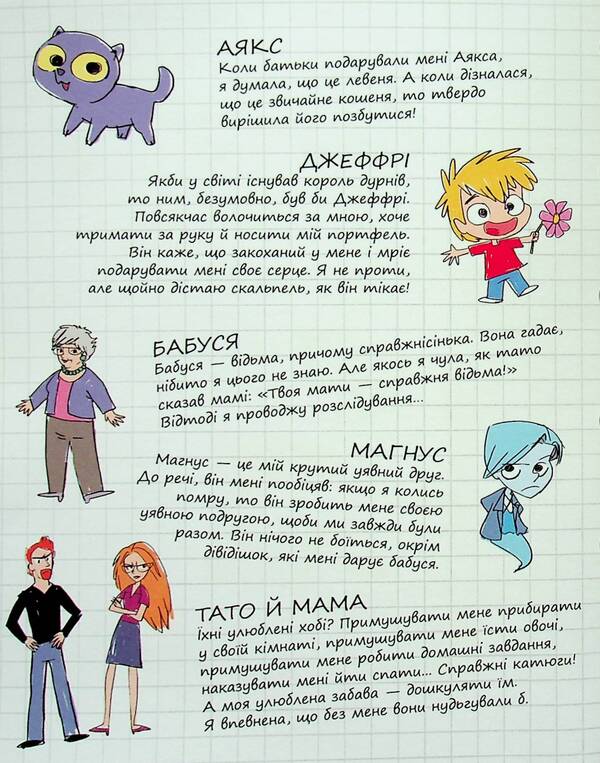 АЯКС
Коли батьки подарували мені Аякса,
я думала, що це левеня. А коли дізналася,
що це звичайне кошеня, то твердо
вирішила його позбутися!
ДЖЕФФРІ
Якби у світі існував король дурнів,
то ним, безумовно, був би Джеффрі.
Повсякчас волочиться за мною, хоче
тримати за руку й носити мій портфель.
Він каже, що закоханий у мене і мріє
подарувати мені своє серце. Я не проти,
але щойно дістаю скальпель, як він тікає!
БАБУСЯ
Бабуся — відьма, причому справжнісінька. Вона гадає,
нібито я цього не знаю. Але якось я чула, як тато
сказав мамі: «Твоя мати — справжня відьма!»
Відтоді я проводжу розслідування...
МАГНУС
Магнус — це мій крутий уявний друг.
До речі, він мені пообіцяв: якщо я колись
помру, то він зробить мене своєю
уявною подругою, щоби ми завжди були
разом. Він нічого не боїться, окрім
дівідішок, які мені дарує бабуся.
ТАТО Й МАМА
Їхні улюблені хобі? Примушувати мене прибирати
у своїй кімнаті, примушувати мене їсти овочі,
примушувати мене робити домашні завдання,
наказувати мені йти спати... Справжні катюги!
А моя улюблена забава — дошкуляти їм.
Я впевнена, що без мене вони нудьгували б.